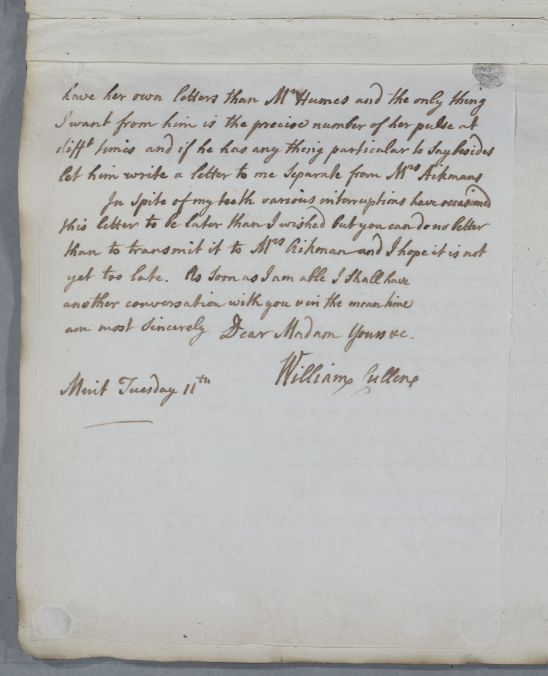 have her own letters than Mr Humes and the only thing
I want from him is the precise number of her pulse at
difft times and if he has any thing particular to say besides
let him write a letter to me separate from Mrs Aikmans
In spite of my teeth various interruptions have occasioned
this letter to be later than I wished but you can do no better
than to transmit it to Mrs Aikman and I hope it is not
yet too late. As soon as I am able I shall have
another conversation with you & in the mean time
am most sincerely Dear Madam Yours &c.
William Cullen
Mint Tuesday 11th